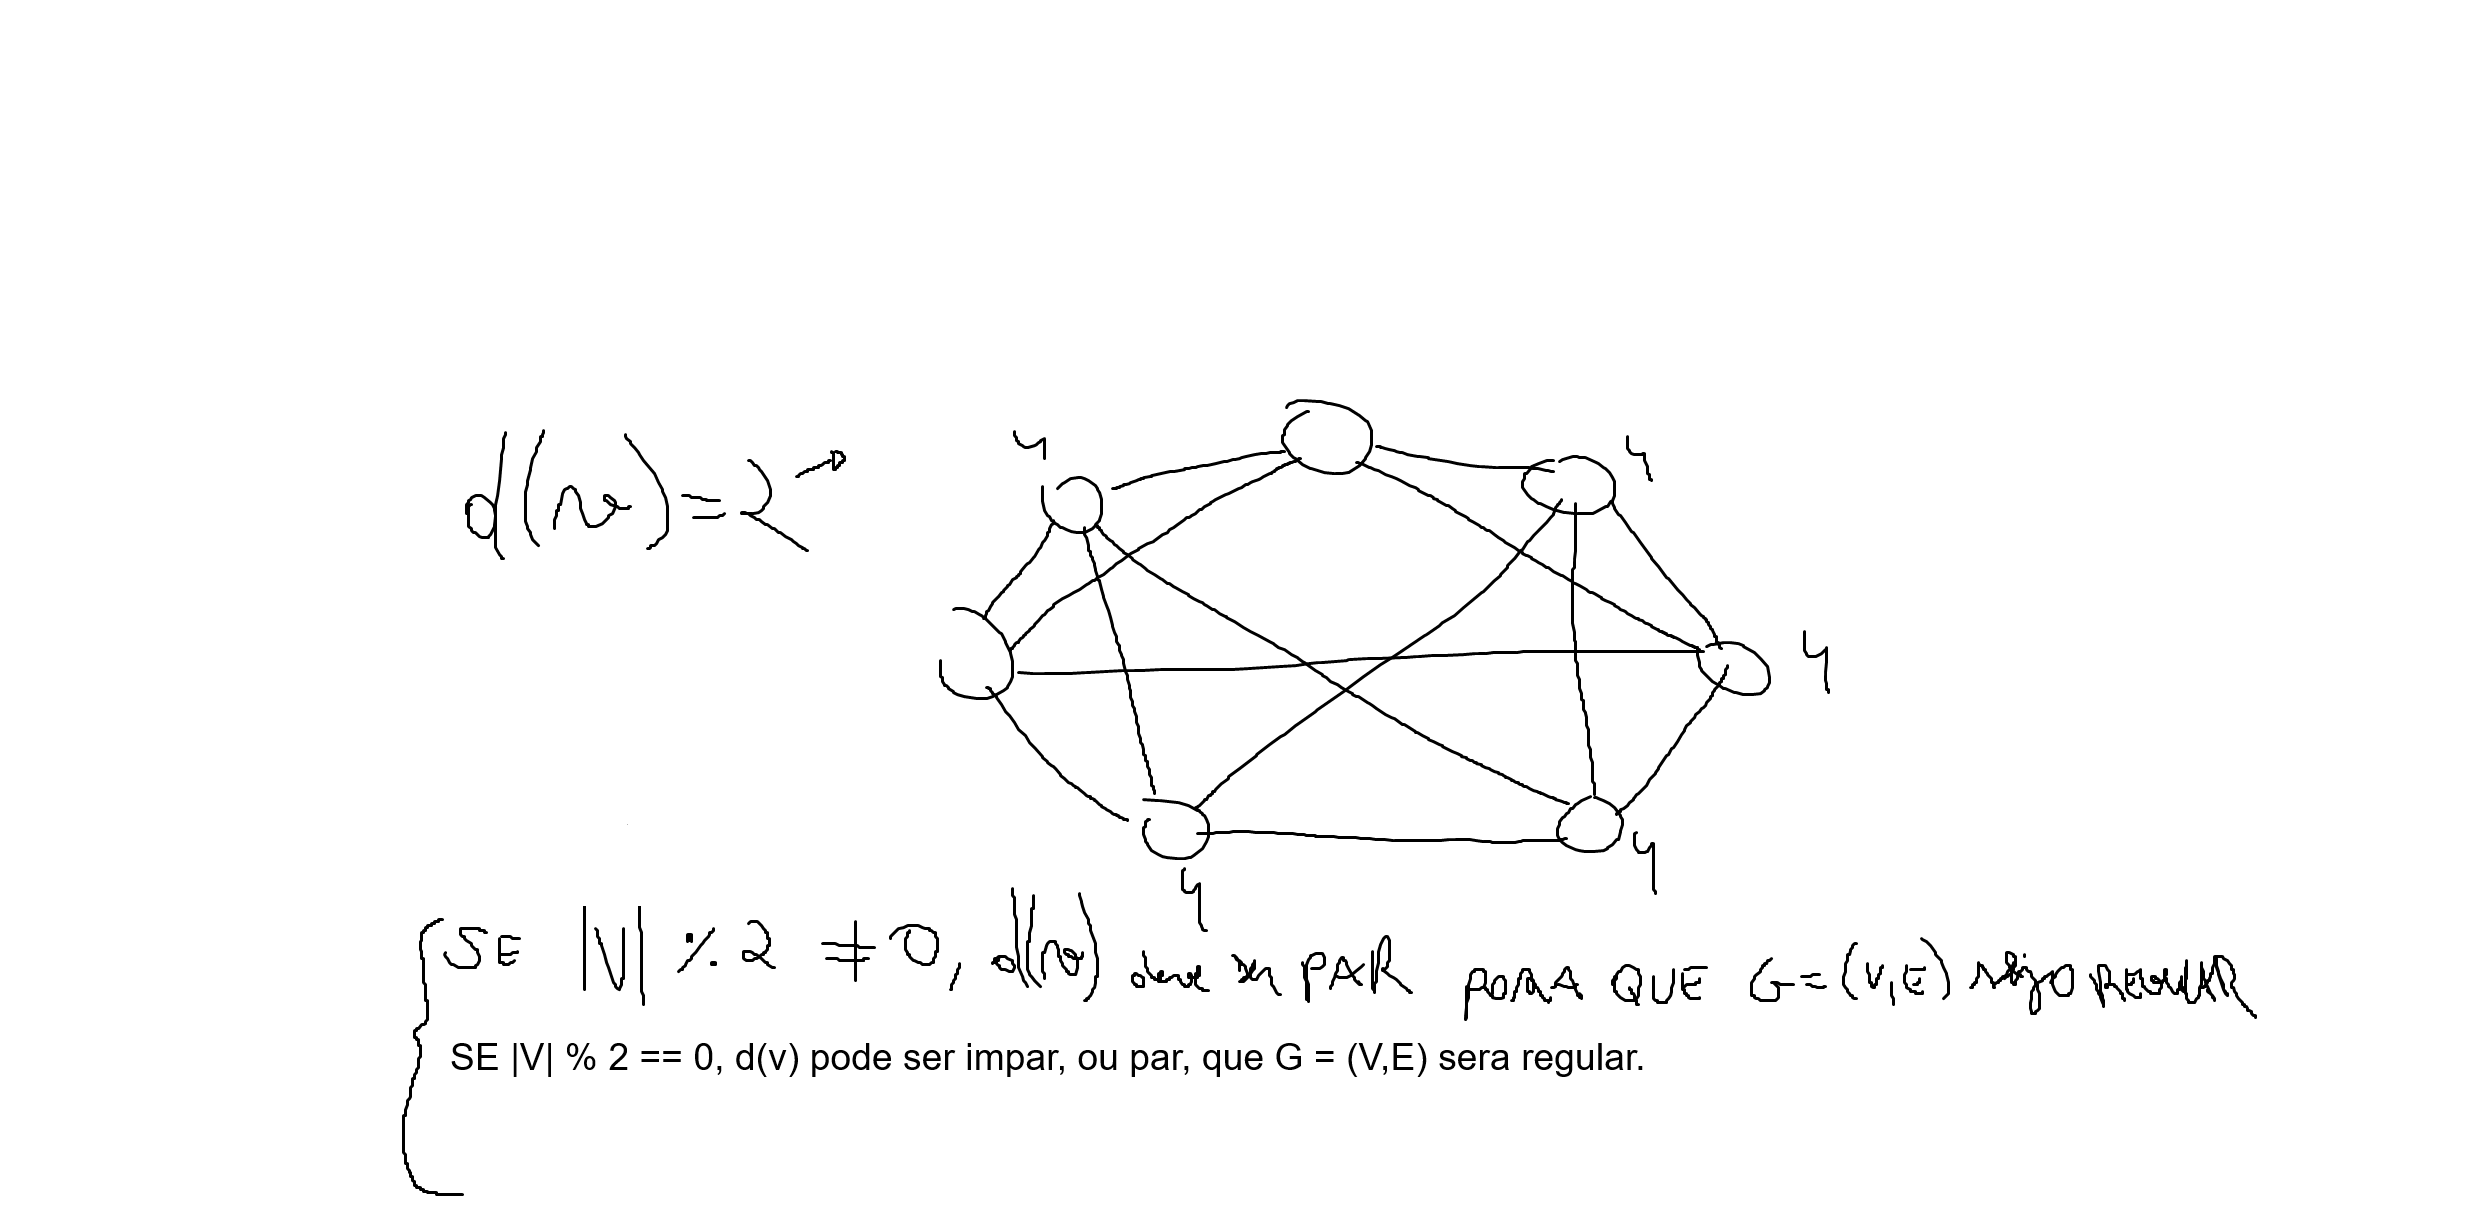 4
4
d(v)=2
4
4
4
SE |V| % 2 ≠ 0, d(v) deve ser PAR PARA QUE G=(V,E) seja REGULAR
SE |V| % 2 == 0, d(v) pode ser impar, ou par, que G = (V,E) sera regular.